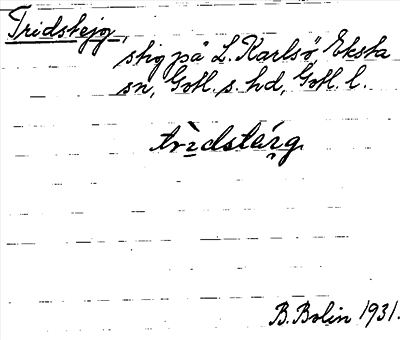 Tridstejg,
stig på L. Karlsö, Eksta
sn, Gotl. s. hd, Gotl. l.
B. Bolin 1931.